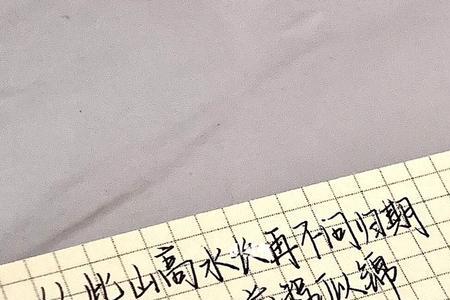 从此山高水长再不问归期
似锦